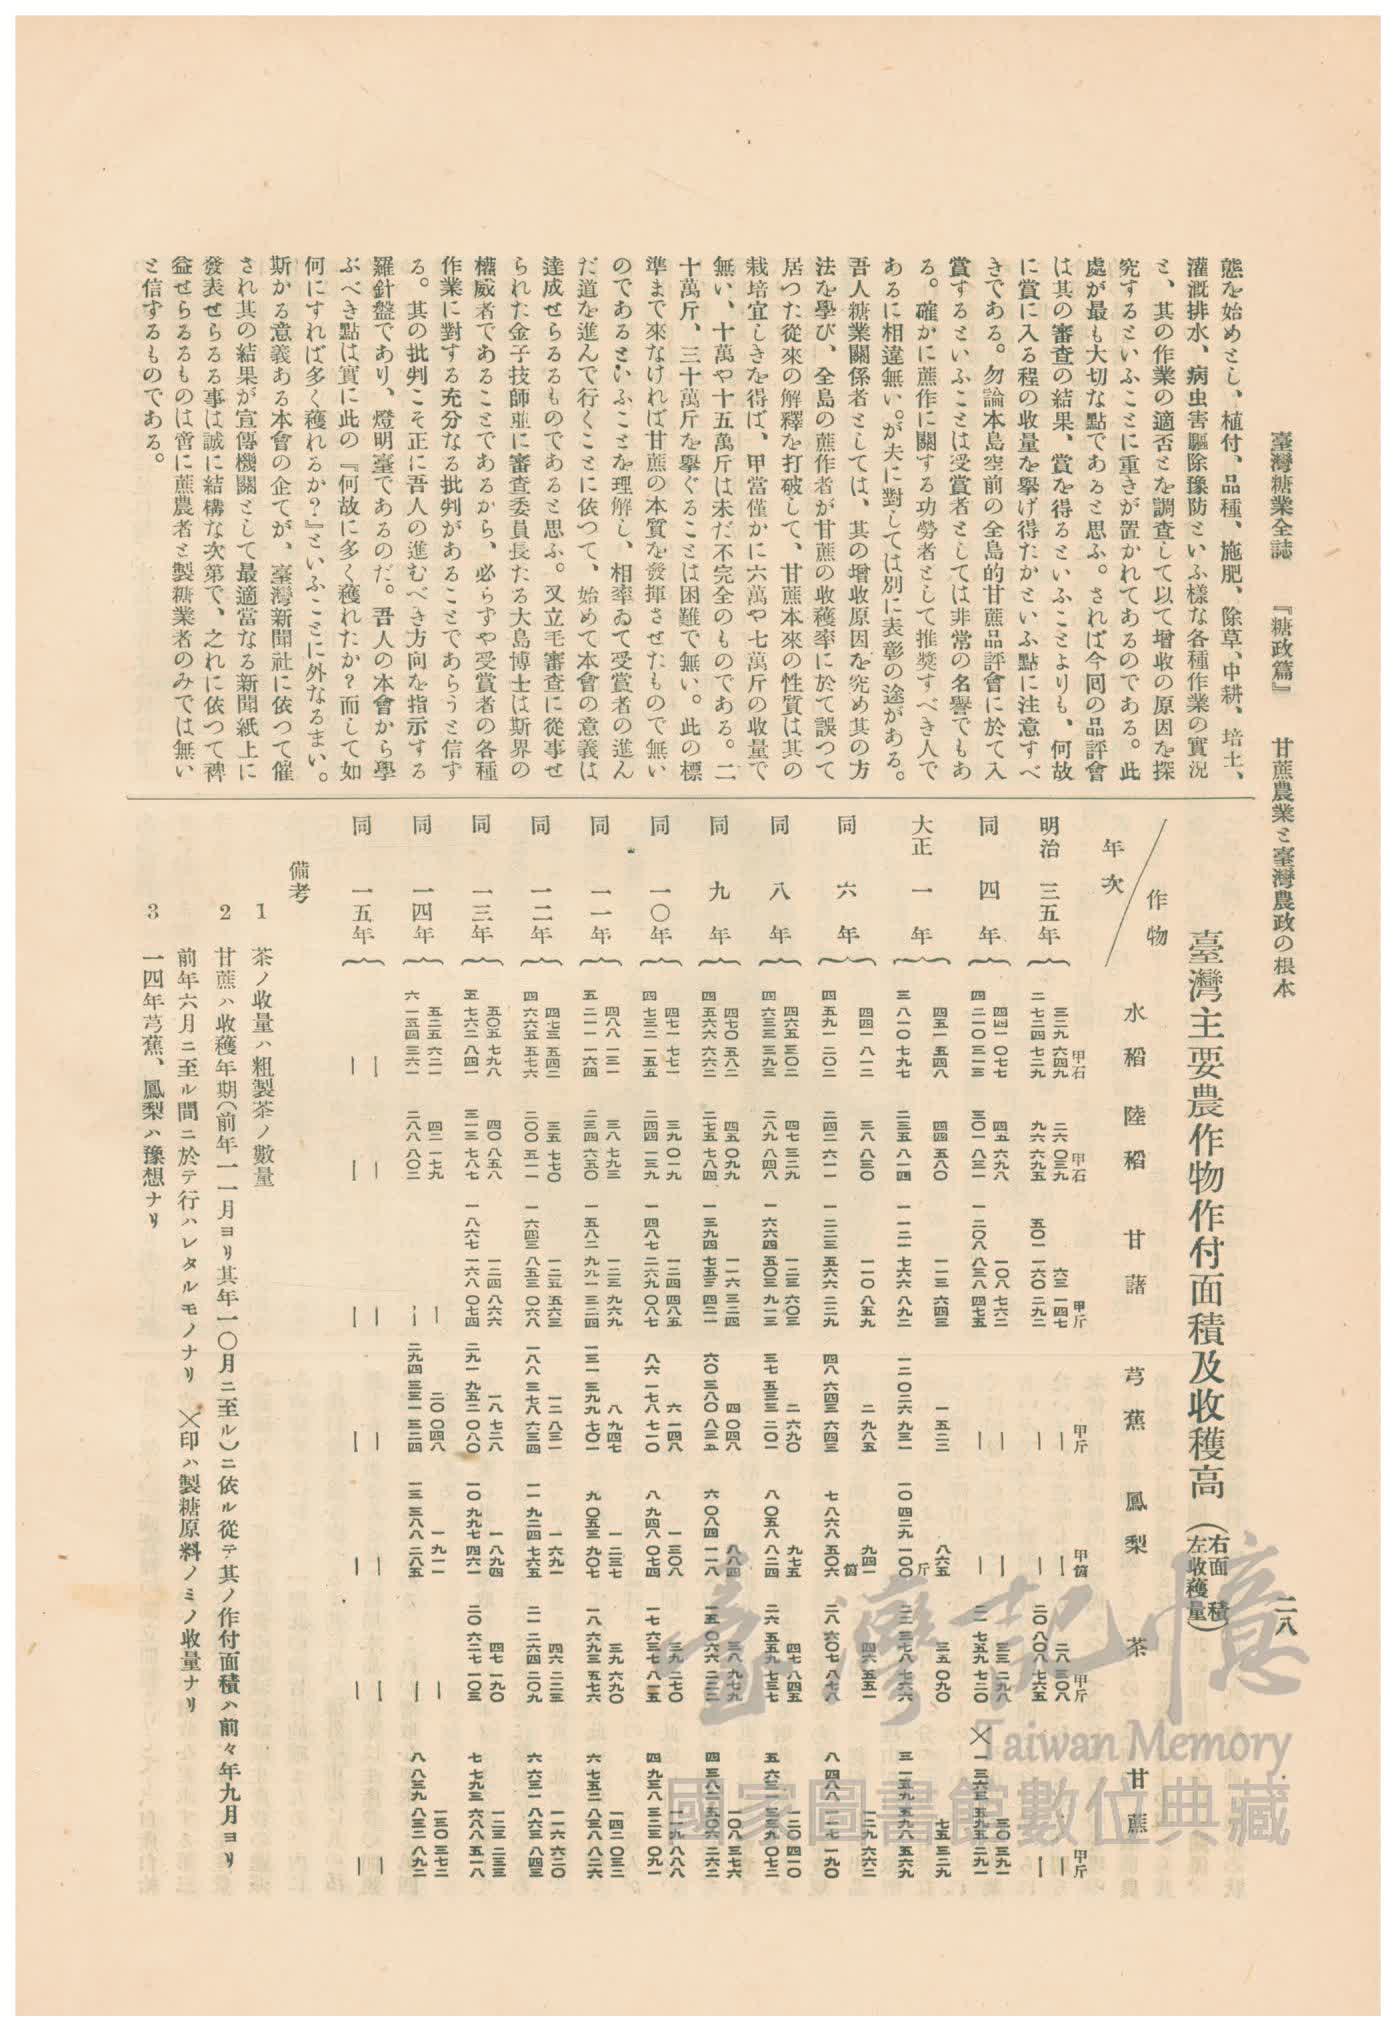 臺灣糖業全誌 『糖政篇』 甘蔗農業と臺灣農政の根本
二八
態を始めとし、植付、品種、施肥、除草、中耕、培土、
灌漑排水、病虫害驅除豫防といふ樣な各種作業の實況
と、其の作業の適否とを調査して以て增收の原因を探
究するといふことに重きが置かれてあるのである。此
處が最も大切な點であると思ふ。されば今回の品評會
は其の審査の結果、賞を得るといふことよりも、何故
に賞に入る程の收量を擧げ得たかといふ點に注意すべ
きである。勿論本島空前の全島的甘蔗品評會に於て入
賞するといふことは受賞者としては非常の名譽でもあ
る。確かに蔗作に關する功勞者として推奬すべき人で
あるに相違無い。が夫に對しては別に表彰の途がある。
吾人糖業關係者としては、其の增收原因を究め其の方
法を學び、全島の蔗作者が甘蔗の收穫率に於て誤つて
居つた從來の解釋を打破して、甘蔗本來の性質は其の
栽培宜しきを得ば、甲當僅かに六萬や七萬斤の收量で
無い、十萬や十五萬斤は未だ不完全のものである。二
十萬斤、三十萬斤を擧ぐることは困難で無い。此の標
準まで來なければ甘蔗の本質を發揮させたもので無い
のであるといふことを理解し、相率ゐて受賞者の進ん
だ道を進んで行くことに依つて、始めて本會の意義は
達成せらるるものであると思ふ。又立毛審査に從事せ
られた金子技師並に審査委員長たる大島博士は斯界の
權威者であることであるから、必らずや受賞者の各種
作業に對する充分なる批判があることであらうと信す
る。其の批判こそ正に吾人の進むべき方向を指示する
羅針盤であり、燈明臺であるのだ。吾人の本會から學
ぶべき點は實に此の『何故に多く穫れたか？而して如
何にすれば多く穫れるか？』といふことに外なるまい。
斯かる意義ある本會の企てが、臺灣新聞社に依つて催
され其の結果が宣傳機關として最適當なる新聞紙上に
發表せらるる事は誠に結構な次第で、之れに依つて裨
益せらるるものは啻に蔗農者と製糖業者のみでは無い
と信するものである。
臺灣主要農作物作付面積及收穫高（右面積 左收穫量）
作物 水稻 陸稻 甘藷 芎蕉 鳳梨 茶 甘蔗
年次
甲石 甲石 甲斤 甲斤 甲箇 甲斤 甲斤
明治 三五年 三二九 六四九 二六 〇三九 六三 一四七 — — 二八 三〇八 —
二 七二四 七二九 九六 六九五 五〇一 一六〇 二九二 — — 二〇 八〇八 七六五 —
同 四年 四四一 〇七七 四五 六九八 一〇八 七六二 — — 三三 二九八 三〇 三九一
四 二一〇 三一三 三〇一 八三一 一 二〇八 八三八 四七五 — — 二一 七五九 七二〇 × 一 三六三 五九五 二九一
大正 一年 四五一 五四八 四四 五八〇 一一三 六四三 一 五二三 八六五 三五 〇九〇 七五 三二九
三 八一〇 七九七 二三五 八一四 一 一二一 七六六 八九二 一二 〇二六 九三一 一〇 四二九 一〇〇斤 二二 三七八 七六六 三 一五九 五九八 五六九
同 六年 四四一 八一二 三八 八三〇 一一〇 八五九 二 九八五 九四一 四六 五五一 一二九 六六二
四 五九一 二〇二 二四二 六一一 一 二三三 五六六 二二九 四八 六四三 六四三 七 八六八 五〇六箇 二八 六〇七 八七八 八 四八八 一一七 一九〇
同 八年 四六五 三〇二 四七 三二九 一二三 六〇三 二 六九〇 九七五 四七 八四五 一二〇 四一〇
四 六三三 三九三 二八九 八四八 一 六六四 五〇三 九一三 三七 五三三 二〇一 八 〇五八 八二四 二六 五五九 七三七 五 六三一 三三九 〇七二
同 九年 四七〇 五八二 四五 〇九九 一一六 三二四 四 〇四八 八八四 三八 九七九 一〇八 三七六
四 五六六 六六二 二七五 七八四 一 三九四 七五三 四二一 六〇 三八〇 八三五 六 〇八四 一一八 一五 〇六六 二二二 四 三八二 五〇六 二六二
同 一〇年 四七一 七七一 三九 〇一九 一二四 四八五 六 一四八 一 三〇八 三九 二七〇 一一九 八八八
四 七三二 一五五 二四四 一三九 一 四八七 二六九 〇八七 八六 一七八 七一〇 八 九四八 〇七四 一七 六三七 八一五 四 九三八 三二三 〇九一
同 一一年 四八八 一三一 三八 七九三 一二三 九六九 八 九四七 一 二三七 三九 六九〇 一四二 〇三二
五 二一一 一六四 二三四 六五〇 一 五八二 九九一 三二四 一三一 三九九 七〇一 九 〇五三 九〇七 一八 六九三 五七六 六 七五二 八三八 八二六
同 一二年 四七三 五四二 三五 七七〇 一二五 五六三 一二 八三一 一 六九一 四六 二二三 一一六 六二〇
四 六六五 五七六 二〇〇 五一一 一 六四三 八五三 〇六八 一八八 三七八 六三四 一一 九二四 七六五 二一 二六四 二〇九 六 六三一 八六三 八四三
同 一三年 五〇五 七九八 四〇 八五八 一二四 八六六 一八 七二八 一 八九四 四七 一九〇 一二三 二三三
五 七六二 八四一 三一三 七八七 一 八六七 一六八 〇七四 二九一 九五二 〇八〇 一〇 九九七 四六一 二〇 六二七 一〇三 七 七九三 六八八 五一八
同 一四年 五二五 六二一 四二 一七九 — 二〇 〇四八 一 九一一 — 一三〇 三七二
六 一五四 三六一 二八八 八〇二 — 二九四 三三一 三二四 一三 三八八 二八五 — 八 八三九 八三二 八九二
同 一五年 — — — — — — —
— — — — — — —
備考
1 茶ノ收量ハ粗製茶ノ數量
2 甘蔗ハ收穫年期（前年一一月ヨリ其年一〇月ニ至ル）ニ依ル從テ其ノ作付面積ハ前々年九月ヨリ
前年六月ニ至ル間ニ於テ行ハレタルモノナリ ×印ハ製糖原料ノミノ收量ナリ
3 一四年芎蕉、鳳梨ハ豫想ナリ
臺灣記憶
Taiwan Memory
國家圖書館數位典藏